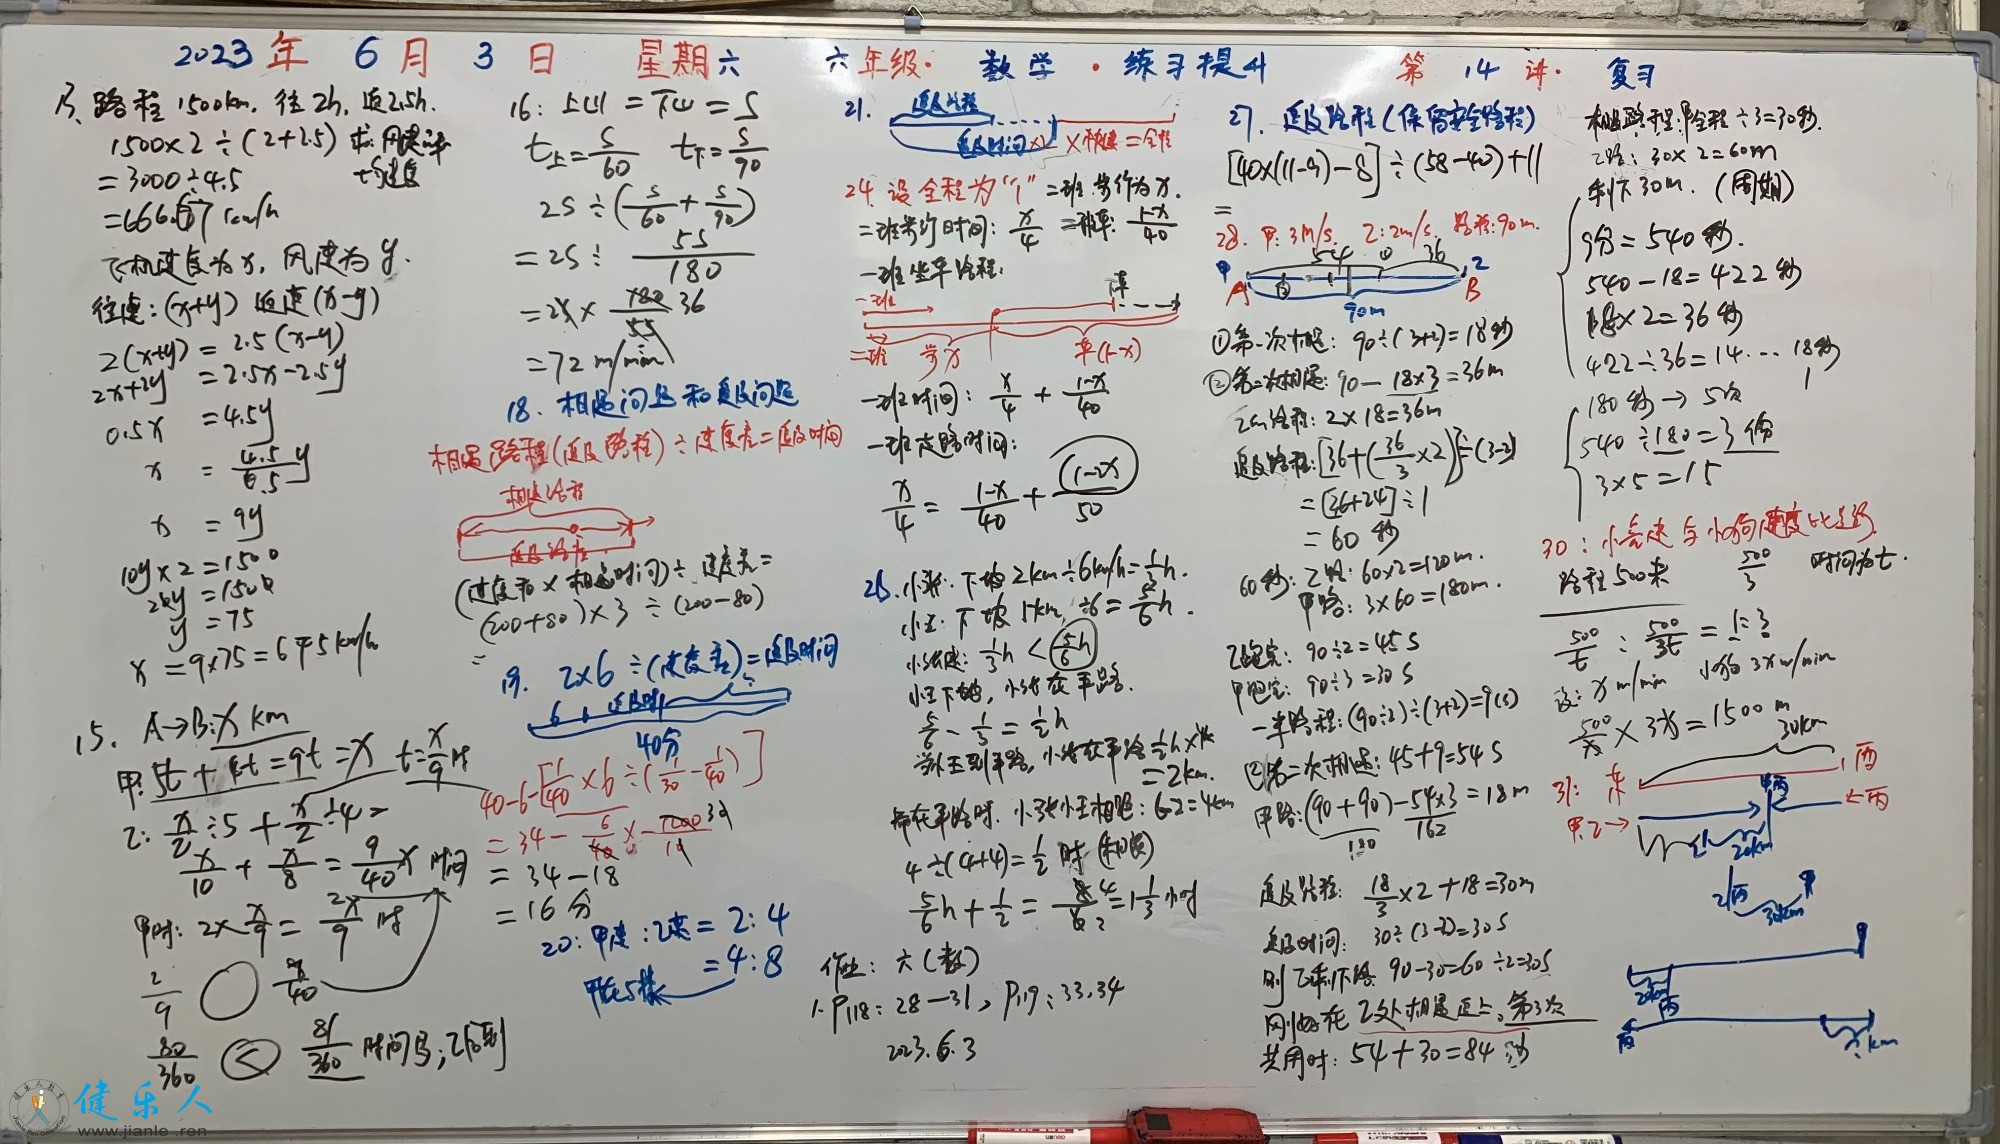 2023年 6月 3日 星期六 六年级·数学·练习提升 第14讲·复习
路程1500km, 往2h, 返2.5h.
1500×2÷(2+2.5)
=3000÷4.5
飞机速度为x, 风速为y.
往速:(x+y) 返速(x-y)
2(x+y) = 2.5(x-y)
2x+2y = 2.5x-2.5y
0.5x = 4.5y
x = 4.5/0.5 y
x = 9y
10y×2=1500
20y=1500
y=75
x=9×75=675km/h
15. A→B:x km
t=x/9时
乙: x/2÷5+x/2÷4=
x/10+x/8=9/40x 时间
甲时: 2×x/9=2x/9时
2/9
80/360 < 81/360
16: 上山=下山=S
t上=S/60 t下=S/90
2S÷(S/60+S/90)
=2S÷5S/180
=72m/min
18. 相遇问题和追及问题
相遇路程(追及路程)÷速度差=追及时间
相遇路程
追及路程
(速度和×相遇时间)÷速度差=
(200+80)×3÷(200-80)
=
19. 2×6÷(速度差)=追及时间
40分
40-6-[1/40×6÷(1/30-1/40)]
=34-18
=16分
20:甲速:乙速=2:4
=4:8
21. 追及路程
追及时间×2×相速=全程
24. 设全程为"1" 二班步行为x.
二班步行时间: x/4 二班车: 1-x/40
一班坐车路程:
一班
车
二班 步x 车(1-x)
一班时间: x/4+1-x/40
一班走路时间:
x/4=1-x/40+(1-2x)/50
小张:下坡2km÷6km/h=1/3h.
小王:下坡5km÷6=5/6h.
1/3h<5/6h
小王下坡,小张在平路.
5/6-1/3=1/2h
=2km.
都在平路时,小张小王相距:6-2=4km
4÷(4+4)=1/2时(相遇)
5/6h+1/2=8/6=1 1/3小时
作业:六(数)
1.P118:28—31, P119:33.34
2023.6.3
27. 追及路程(保留安全路程)
[40×(11-9)-8]÷(58-40)+11
=
28. 甲:3m/s. 乙:2m/s. 路程:90m.
甲 54 36 乙
A B
90m
①第一次相遇: 90÷(3+2)=18秒
②第二次相遇: 90-18×3=36m
乙的路程: 2×18=36m
追及路程:[36+(36/3×2)]÷(3-2)
=[36+24]÷1
=60秒
60秒:乙路:60×2=120m.
甲路:3×60=180m.
乙跑完: 90÷2=45s
甲跑完: 90÷3=30s
一半路程:(90÷2)÷(3+2)=9(s)
②第二次相遇:45+9=54s
甲路:(90+90)-54×3=18m
180 162
追及路程: 18/3×2+18=30m
追及时间: 30÷(3-2)=30s
则乙剩下路 90-30=60÷2=30s
刚好在乙处相遇追上,第3次
共用时: 54+30=84秒
乙路:30×2=60m
剩下30m. (周期)
9分=540秒.
540-18=422秒
18×2=36秒
422÷36=14……18秒
1
180秒→5次
540÷180=3份
3×5=15
30:小亮速与小狗速度比
路程500米 500/3 时间为t.
500/t:500/3t=1:3
设:x m/min 小狗3x m/min
500/x×3x=1500m
31: 东 30km 西
甲乙→ ←丙
20km
乙 丙
30km
20km
丙
km
健乐人
www.jianle.ren